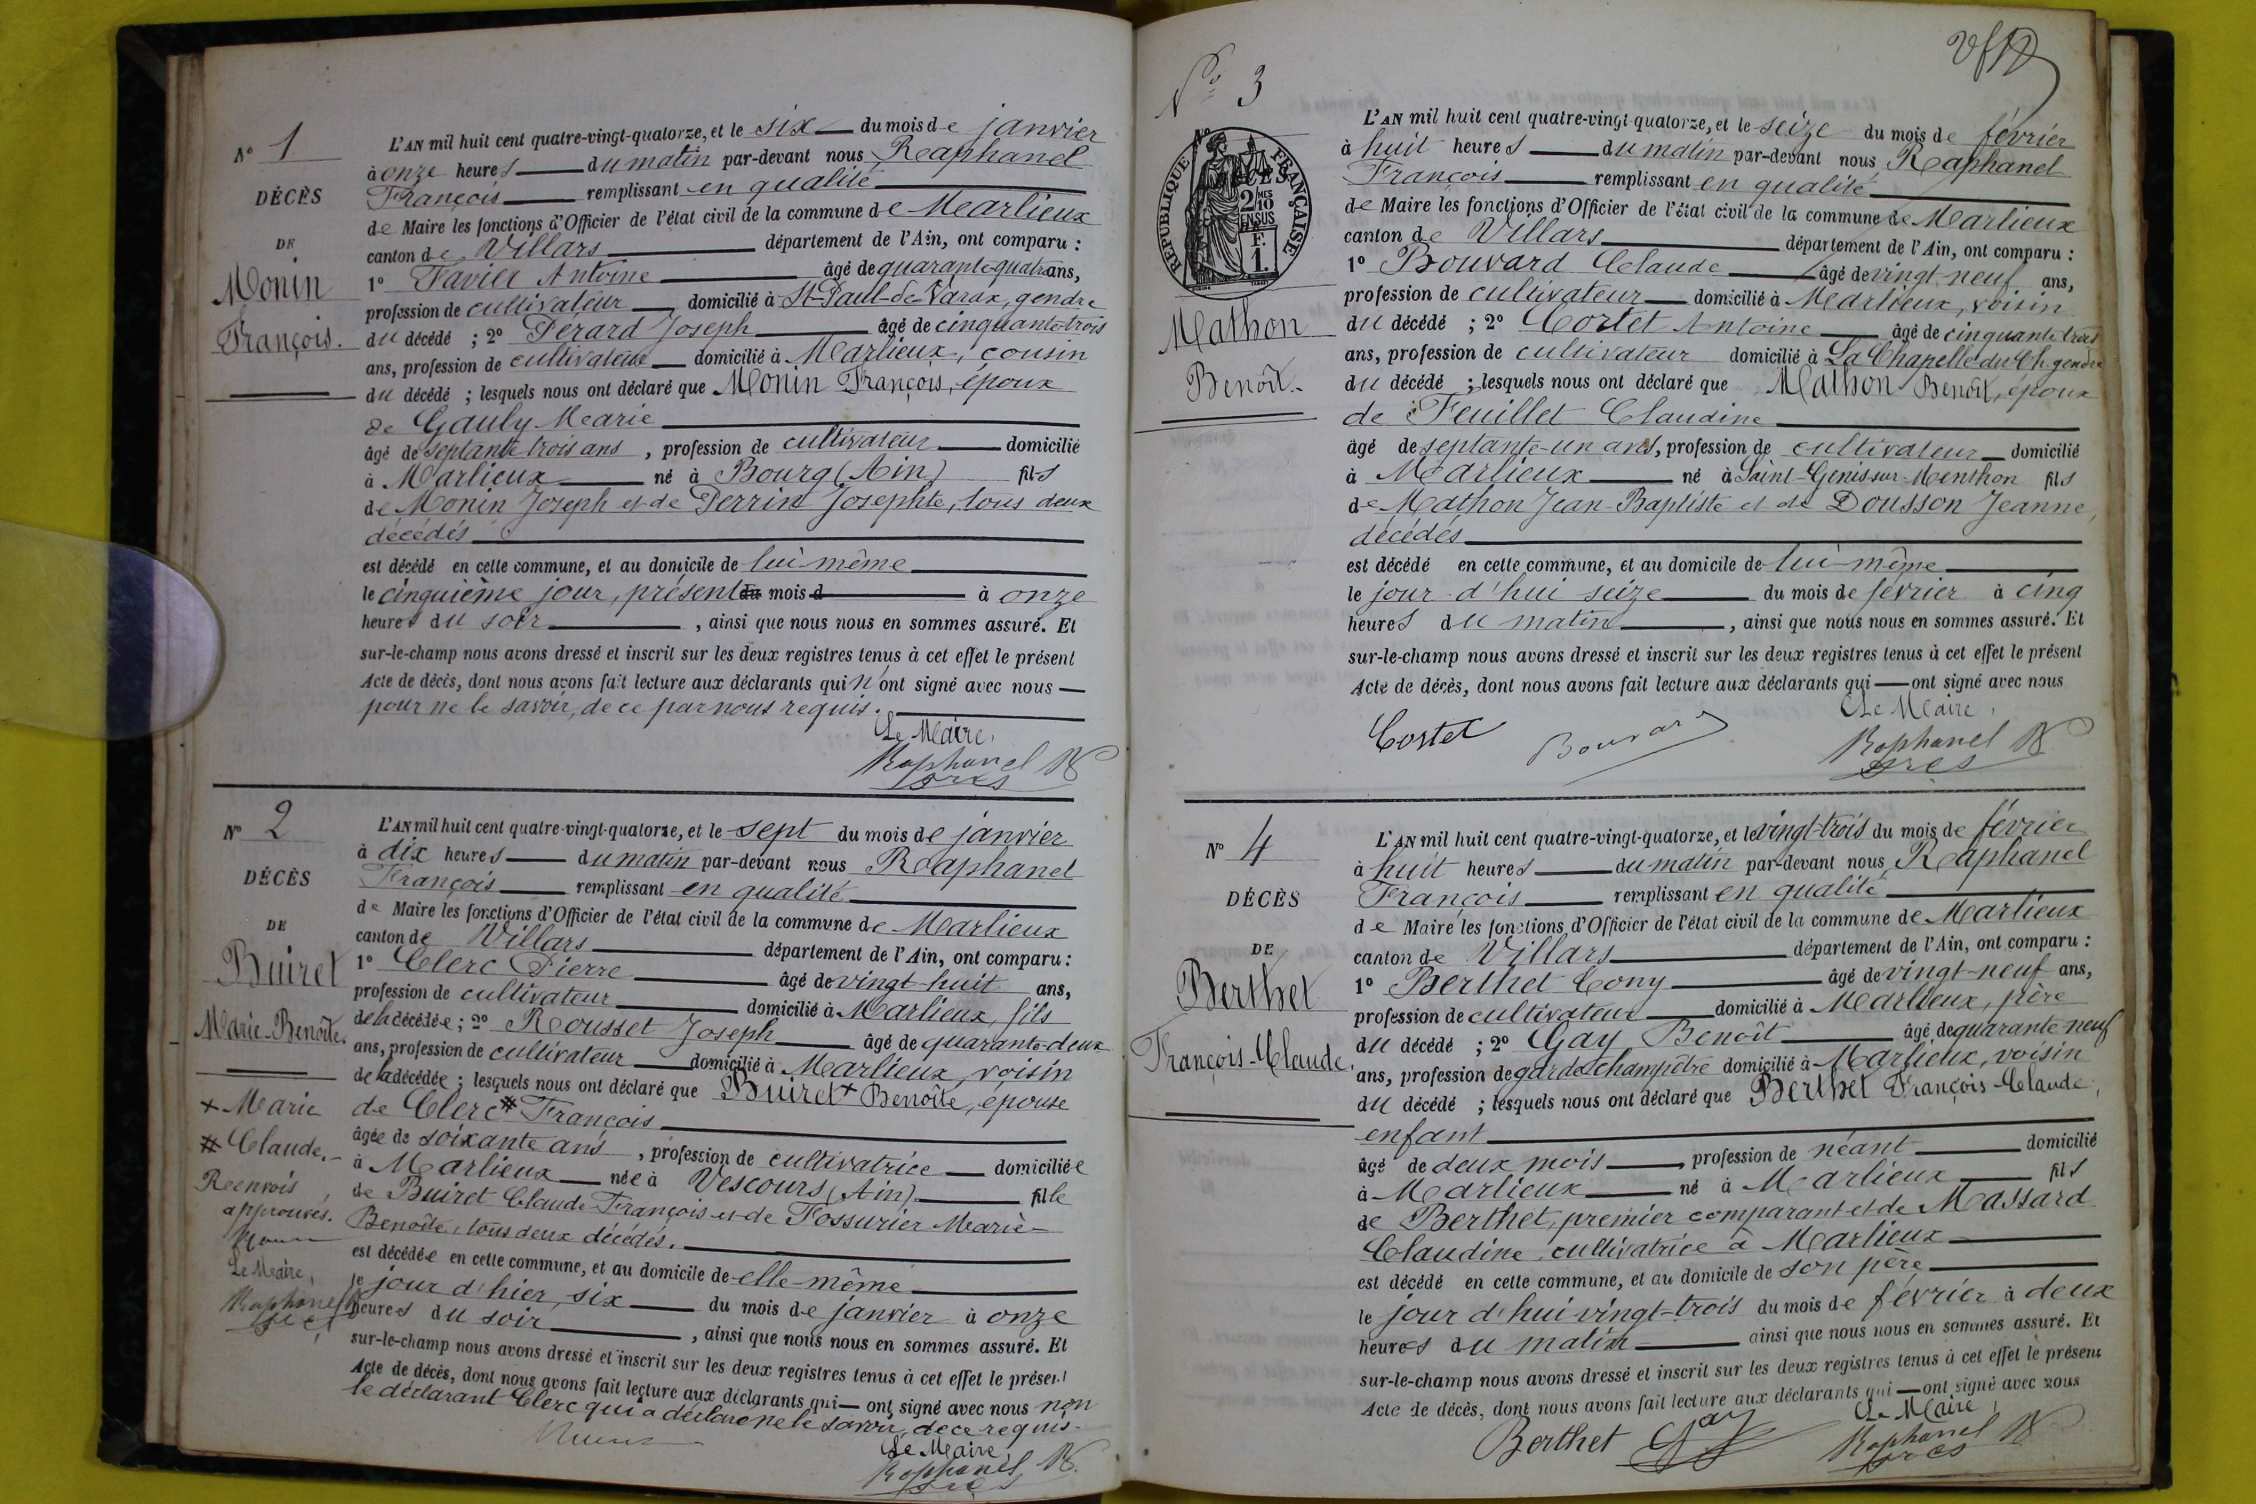 Nº 1
DÉCÈS
DE
Monin
François.
L'AN mil huit cent quatre-vingt-quatorze, et le six du mois de janvier
à onze heures du matin par-devant nous Raphanel
François remplissant en qualité
de Maire les fonctions d'Officier de l'état civil de la commune de Marlieux
canton de Villars département de l'Ain, ont comparu :
1º Favier Antoine âgé de quarante-quatre ans,
profession de cultivateur domicilié à St-Paul-de-Varax, gendre
du décédé ; 2º Ferard Joseph âgé de cinquante-trois
ans, profession de cultivateur domicilié à Marlieux, cousin
du décédé ; lesquels nous ont déclaré que Monin François, époux
de Gauly Marie
âgé de septante trois ans , profession de cultivateur domicilié
à Marlieux né à Bourg (Ain) fils
de Monin Joseph et de Perrin Josephte, tous deux
décédés
est décédé en cette commune, et au domicile de lui-même
le cinquième jour, présent du mois d à onze
heures du soir , ainsi que nous nous en sommes assuré. Et
sur-le-champ nous avons dressé et inscrit sur les deux registres tenus à cet effet le présent
Acte de décès, dont nous avons fait lecture aux déclarants qui n'ont signé avec nous
pour ne le savoir, de ce par nous requis.
Le Maire,
Raphanel
Nº 2
DÉCÈS
DE
Buiret
Marie-Benoîte.
+ Marie
# Claude.
Renvois
approuvés.
Le Maire,
Raphanel
L'AN mil huit cent quatre-vingt-quatorze, et le sept du mois de janvier
à dix heures du matin par-devant nous Raphanel
François remplissant en qualité
de Maire les fonctions d'Officier de l'état civil de la commune de Marlieux
canton de Villars département de l'Ain, ont comparu :
1º Clerc Pierre âgé de vingt-huit ans,
profession de cultivateur domicilié à Marlieux, fils
de la décédée ; 2º Rousset Joseph âgé de quarante-deux
ans, profession de cultivateur domicilié à Marlieux, voisin
de la décédée ; lesquels nous ont déclaré que Buiret + Benoîte, épouse
de Clerc # François
âgée de soixante ans , profession de cultivatrice domiciliée
à Marlieux née à Vescours (Ain) fille
de Buiret Claude François et de Fossurier Marie-
Benoîte, tous deux décédés.
est décédée en cette commune, et au domicile de elle-même
le jour d'hier, six du mois de janvier à onze
heures du soir , ainsi que nous nous en sommes assuré. Et
sur-le-champ nous avons dressé et inscrit sur les deux registres tenus à cet effet le présent
Acte de décès, dont nous avons fait lecture aux déclarants qui ont signé avec nous non
le déclarant Clerc qui a déclaré ne le savoir, de ce requis.
Le Maire,
Raphanel
Nº 3
RÉPUBLIQUE FRANÇAISE
2/10
EN SUS
1 F.
Mathon
Benoît.
L'AN mil huit cent quatre-vingt-quatorze, et le seize du mois de février
à huit heures du matin par-devant nous Raphanel
François remplissant en qualité
de Maire les fonctions d'Officier de l'état civil de la commune de Marlieux
canton de Villars département de l'Ain, ont comparu :
1º Bouvard Claude âgé de vingt-neuf ans,
profession de cultivateur domicilié à Marlieux, voisin
du décédé ; 2º Cortet Antoine âgé de cinquante trois
ans, profession de cultivateur domicilié à La Chapelle du Ch. gendre
du décédé ; lesquels nous ont déclaré que Mathon Benoît, époux
de Feuillet Claudine
âgé de septante-un ans, profession de cultivateur domicilié
à Marlieux né à Saint-Genis sur Menthon fils
de Mathon Jean-Baptiste et de Dousson Jeanne,
décédés
est décédé en cette commune, et au domicile de lui-même
le jour d'hui seize du mois de février à cinq
heures du matin , ainsi que nous nous en sommes assuré. Et
sur-le-champ nous avons dressé et inscrit sur les deux registres tenus à cet effet le présent
Acte de décès, dont nous avons fait lecture aux déclarants qui ont signé avec nous
Le Maire,
Cortet Bouvard Raphanel
Nº 4
DÉCÈS
DE
Berthet
François-Claude.
L'AN mil huit cent quatre-vingt-quatorze, et le vingt-trois du mois de février
à huit heures du matin par-devant nous Raphanel
François remplissant en qualité
de Maire les fonctions d'Officier de l'état civil de la commune de Marlieux
canton de Villars département de l'Ain, ont comparu :
1º Berthet Cony âgé de vingt-neuf ans,
profession de cultivateur domicilié à Marlieux, père
du décédé ; 2º Gay Benoît âgé de quarante-neuf
ans, profession de garde champêtre domicilié à Marlieux, voisin
du décédé ; lesquels nous ont déclaré que Berthet François-Claude,
enfant
âgé de deux mois , profession de néant domicilié
à Marlieux né à Marlieux fils
de Berthet, premier comparant et de Massard
Claudine cultivatrice à Marlieux
est décédé en cette commune, et au domicile de son père
le jour d'hui vingt-trois du mois de février à deux
heures du matin ainsi que nous nous en sommes assuré. Et
sur-le-champ nous avons dressé et inscrit sur les deux registres tenus à cet effet le présent
Acte de décès, dont nous avons fait lecture aux déclarants qui ont signé avec nous
Le Maire,
Berthet Gay Raphanel